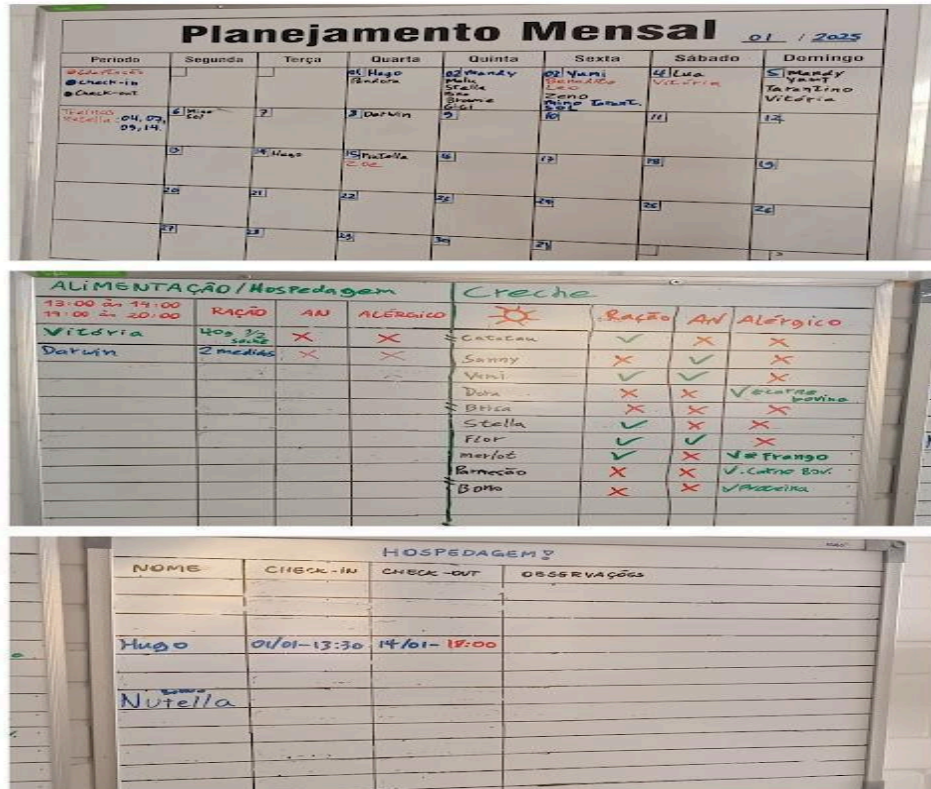 Planejamento Mensal 01 / 2025
Período Segunda Terça Quarta Quinta Sexta Sábado Domingo
Check-in
Check-out
01 Hugo
Pandora
02 Mandy
Malu
Stella
Brownie
Gigi
03 Yumi
Benedito
Leo
Zeno
Mino Tarant.
Sol
4 Lua
Vitória
5 Mandy
Yami
Tarantino
Vitória
04, 07,
09, 14.
6
7
8 Darwin
9
10
11
12
13
14 Hugo
15 Nutella
Zoe
16
17
18
19
20
21
22
23
24
25
26
27
28
29
30
31
ALIMENTAÇÃO/Hospedagem
13:00 às 14:00
19:00 às 20:00
RAÇÃO AN ALÉRGICO
Vitória 40g 1/2 sachê X X
Darwin 2 medidas X X
Creche
Ração AN Alérgico
Catatau ✓ X X
Sanny X ✓ X
Yumi ✓ ✓ X
Dora X X ✓ carne bovina
Brisa X X X
Stella ✓ X X
Flor ✓ ✓ X
merlot ✓ X ✓ Frango
Parmesão X X ✓. Carne Bovi.
Bono X X ✓ Proteína
HOSPEDAGEM!
NOME CHECK-IN CHECK-OUT OBSERVAÇÕES
Hugo 01/01-13:30 14/01-18:00
Nutella